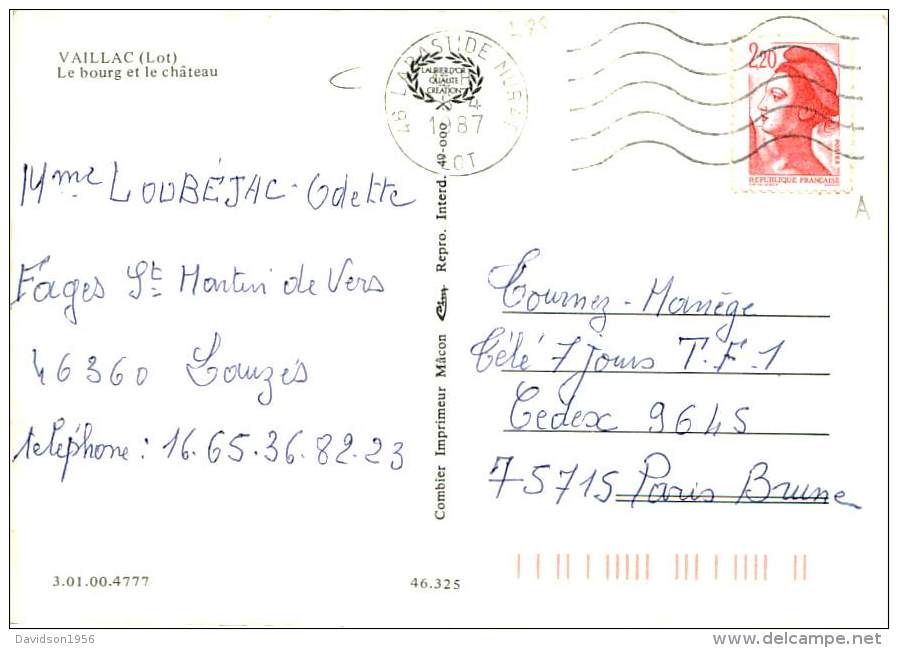 VAILLAC (Lot)
Le bourg et le château
46 LABASTIDE MURAT
LAURIER D'OR
QUALITÉ
CRÉATION
4
1987
LOT
2,20
POSTES
REPUBLIQUE FRANÇAISE
A
Mme LOUBÉJAC - Odette
Fages St Martin de Vers
46360 Lauzès
téléphone : 16.65.36.82.23
Combier Imprimeur Mâcon Cim Repro. Interd. 49-000
Tournez - Manège
Télé 7 jours T.F.1
Cedex 9645
75715 Paris Brune
3.01.00.4777
46.325
Davidson1956
www.delcampe.net